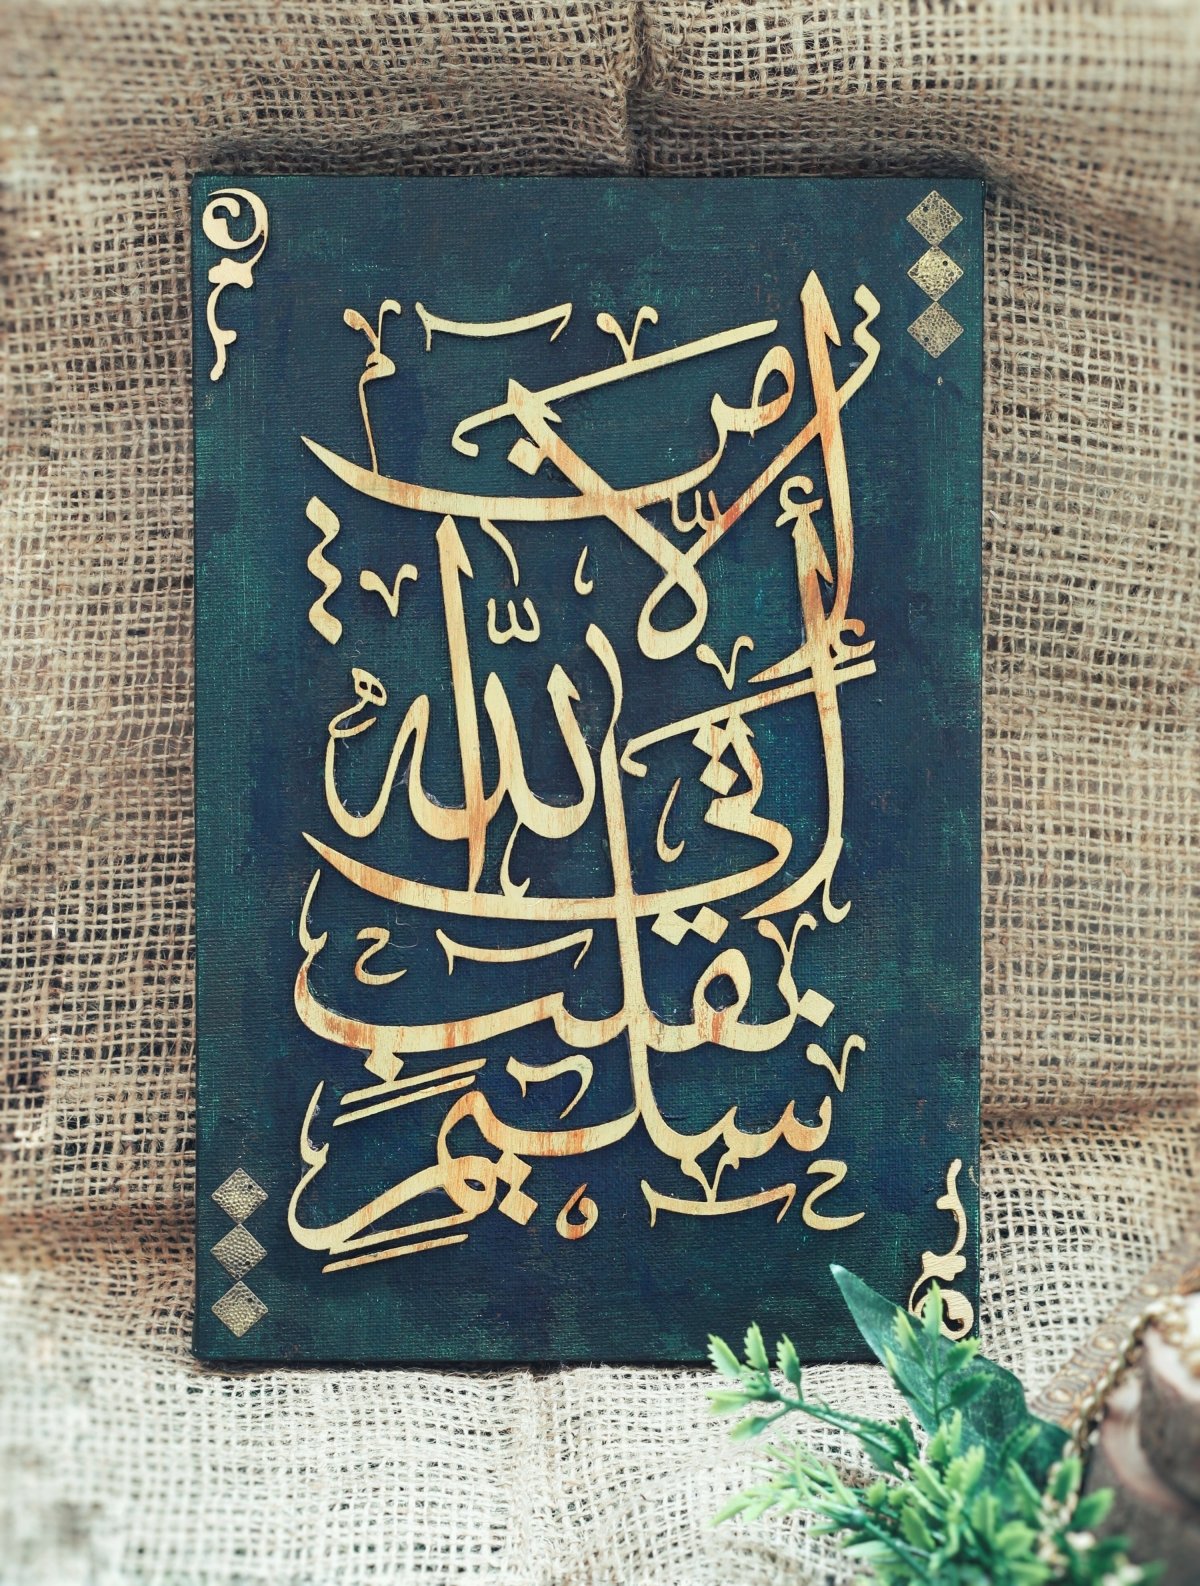 إِلَّا مَنْ
أَتَى اللَّهَ
بِقَلْبٍ
سَلِيمٍ